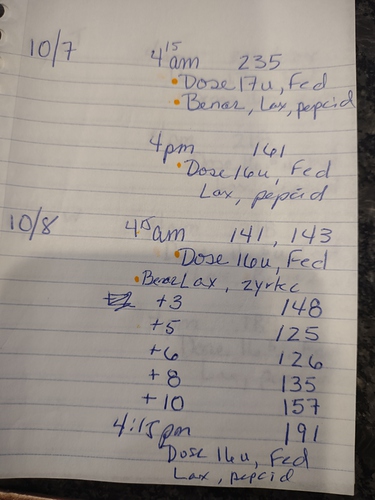 10/7 4¹⁵am 235
• Dose 17u, Fed
• Benaz, Lax, pepcid
4pm 161
• Dose 16u, Fed
Lax, pepcid
10/8 4¹⁵am 141, 143
• Dose 16u, Fed
• Benaz Lax, zyrtec
+3 148
+5 125
+6 126
+8 135
+10 157
4:15pm 191
Dose 16u, Fed
Lax, pepcid